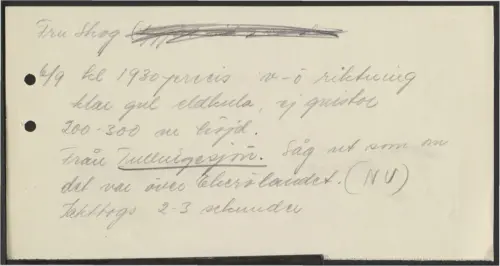 Fru Skog
6/9 kl 1930 precis v-ö riktning
klar gul eldkula, ej gnistor
200-300 m höjd.
Från Tullingesjön. Såg ut som om
det var över Ekerölandet. (NV)
Iakttogs 2-3 sekunder